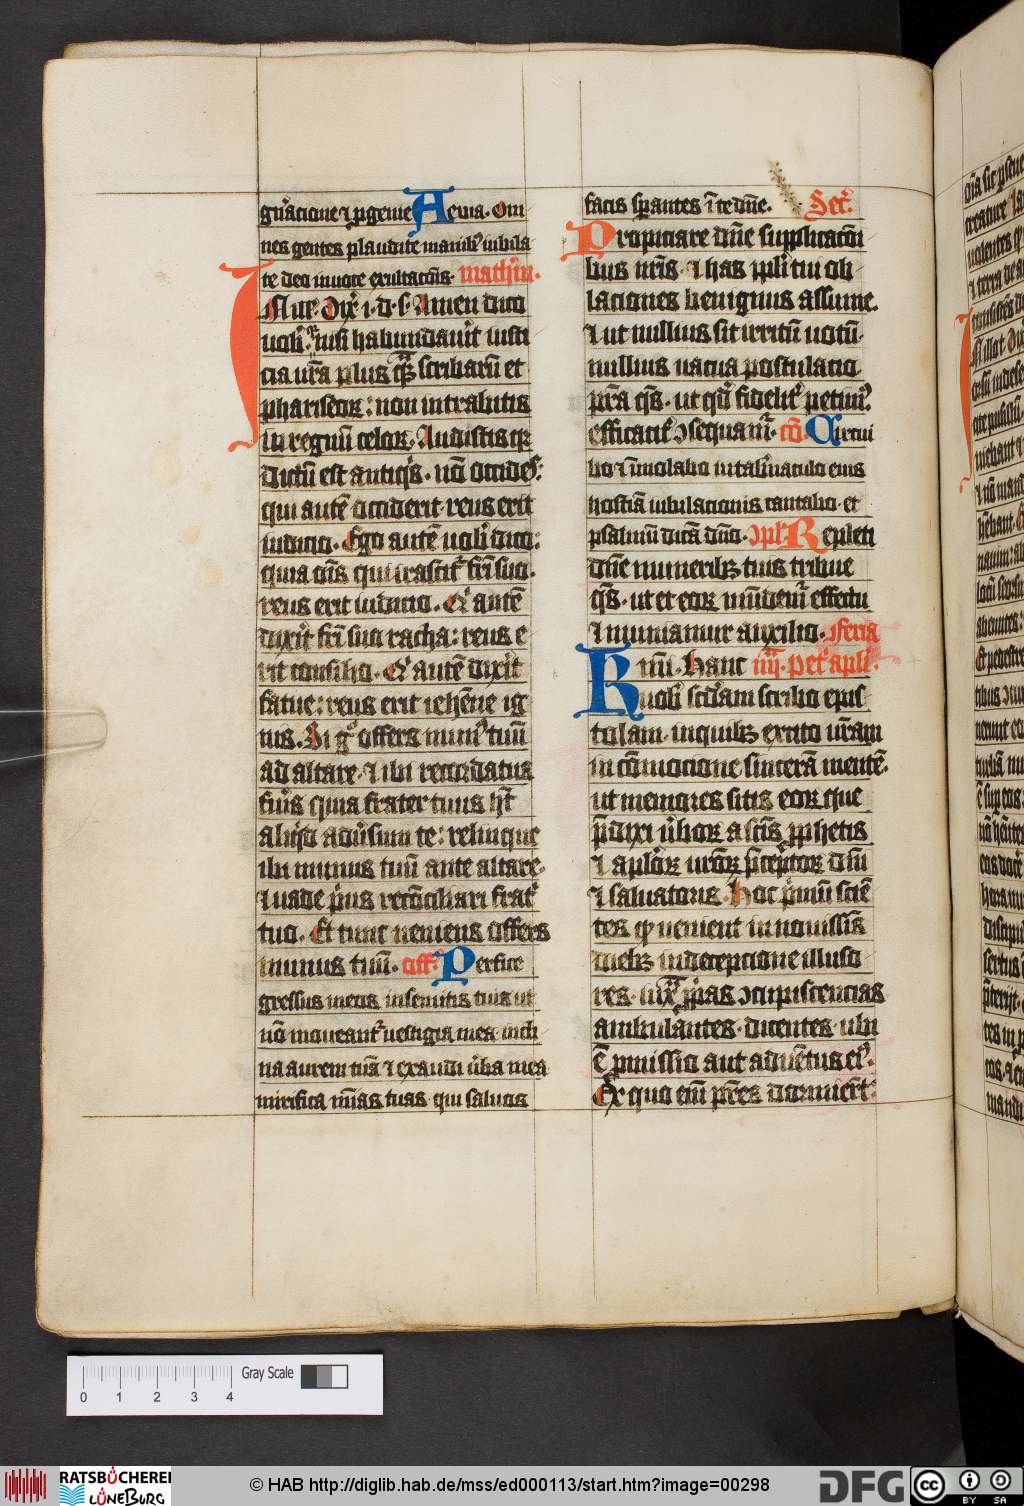 gn̄acione ⁊ ꝓgenie Aeuia. Om
nes gentes plaudite manibꝰ iubila
te deo in uoce exultacōīs. math'm̄.
In illr̄. Dix̄ i. d. s. Amen dico
uob̄. qr̄ nisi habundauīt iusti
cia ur̄a plus q̄ꝫ scribarū et
phariseoꝝ: non intrabitis
in regnū celoꝝ. Audistis qꝛ
dictū est antiqis. nō occides:
qui autē occiderit reus erit
iudicio. Ego autē uob̄ dico:
quia om̄s qui irascit̄ fr̄i suo.
reus erit iudicio. Q̄i autē
dixit̄ fr̄i suo racha: reus e
rit consilio. Q̄i autē dixit̄
fatue: reus erit iehēne ig
nis. Si gͦ offers munꝰ tuū
ad altare. ⁊ ibi recordatus
fuīs quia frater tuus ht̄
aliqͥd adūsum te: relinque
ibi munus tuū ante altare.
⁊ uade pͥus recōciliari frat̄
tuo. Et tunc ueniens offers
munus tuū. off. Perfice
gressus meos in semitis tuis ut
nō moueant̄ uestigia mea incli
na aurem tuā ⁊ exaudi ūba mea
mirifica mīas tuas qui saluos
facis sꝑantes ī te dn̄e. Sec̄.
Propiciare dn̄e supplicacōī
bus nr̄is. ⁊ has ppl̄i tui ob
laciones benignus assume.
⁊ ut nullius sit irritū uotū.
nullius uacua postulacio
pr̄a qs̄. ut qd̄ fidelit̄ petimꝰ.
efficacit̄ ↄsequamr̄. cō. Circui
bo ⁊ īmolabo in tab̄naculo eius
hostiā iubilacionis cantabo. et
psalmū dicā dn̄o. ↄpl̄. Repleti
dn̄e muneribꝫ tuis tribue
qs̄. ut et eoꝝ mūdemr̄ effectu
⁊ muniamur auxilio. feria
Kmi. Hanc iiij. Pet̄ apl̄i.
uob̄ scd̄am scribo epis
tolam. in quibꝫ excito ur̄am
in cōmocione sincerā mentē.
ut memores sitis eoꝝ que
p̄dixi ūboꝝ a scīs ꝓphetis
⁊ aplōꝝ uroꝝ p̄ceptoꝝ dn̄i
⁊ saluatoris. Hoc pͥmū sciē
tes qꝙ uenient in nouissīs
diebꝫ in decepcione illuso
res. iux̄ ꝓp̄as ↄcupiscencias
ambulantes. dicentes. ubi
ē ꝓmissio aut aduētus eiꝰ.
Ex quo em̄ pr̄es dormier̄t.
Gray Scale
0 1 2 3 4
RATSBÜCHEREI
LÜNEBURG
© HAB http://diglib.hab.de/mss/ed000113/start.htm?image=00298
DFG
cc BY SA